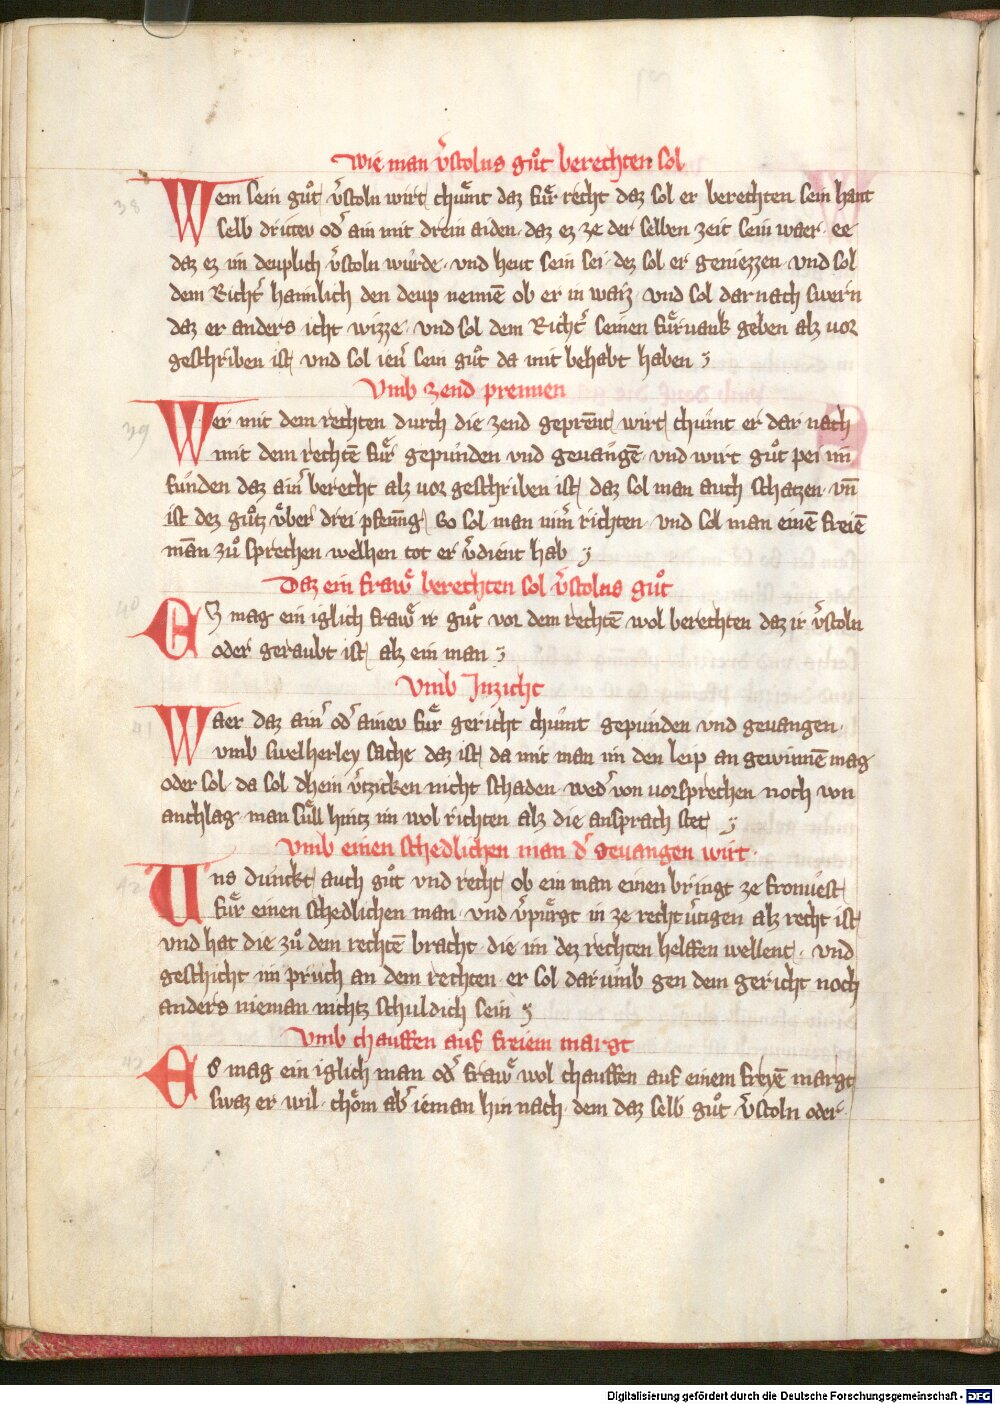 Wie man v̓stolns gůt berechten sol
38
Wem sein gůt v̓stoln wirt chůmt daz fu̍r recht daz sol er berechten sein hant
selb dritter od̓ ain mit drein aiden daz ez ze der selben zeit sein waer ee
daz ez im deuplich v̓stoln wu̍rde vnd heut sein sei dez sol er geniezzen vnd sol
dem Richt̓ haimlich den deup nennē ob er in waiz vnd sol dar nach swern
daz er anders icht wizze vnd sol dem Richt̓ seinen fu̍rvank geben alz vor
geschriben ist vnd sol ien̓ sein gůt da mit behabt haben
Vmb Zend prennen
39
Wer mit dem rechten durch die zend geprēnt wirt chumt er dar nach
mit dem rechtē fu̍r gepunden vnd gevangē vnd wirt gůt pei im
funden daz ain̓ berecht alz vor geschriben ist daz sol man auch schatzen vn̄
ist dez gůtz u̍ber drei pfenn̄g So sol man vm̄ richten vnd sol man einē freiē
man zů sprechen welhen tot er v̓dient hab
Daz ein fraw̍ berechten sol v̓stolns gůt
40
EZ mag ein iglich fraw̍ ir gůt vor dem rechtē wol berechten daz ir v̓stoln
oder geraubt ist alz ein man
Vmb Inzicht
41
Waer daz ain̓ od̓ ainer fu̍r gericht chumt gepunden vnd gevangen
vmb swelherley sache daz ist da mit man im den leip an gewinnē mag
oder sol da sol dhein v̓tzicken nicht schaden wed̓ von vorsprechen noch von
anchlag man su̍ll hintz im wol richten alz die ansprach stet
Vmb einen schedlichen man d̓ gevangen wirt
42
Uns dunckt auch gůt vnd recht ob ein man einen bringt ze fronvest
fu̍r einen schedlichen man vnd v̓pu̍rgt in ze recht v̓tigen alz recht ist
vnd hat die zů dem rechtē bracht die im dez rechten helffen wellent vnd
geschicht im pruch an dem rechten er sol darumb gen dem gericht noch
anders nieman nichtz schuldich sein
Vmb chauffen auf freiem margt
43
Es mag ein iglich man od̓ fraw̍ wol chauffen auf einem freyē margt
swaz er wil chöm ab̓ ieman hin nach dem daz selb gůt v̓stoln oder
Digitalisierung gefördert durch die Deutsche Forschungsgemeinschaft - DFG